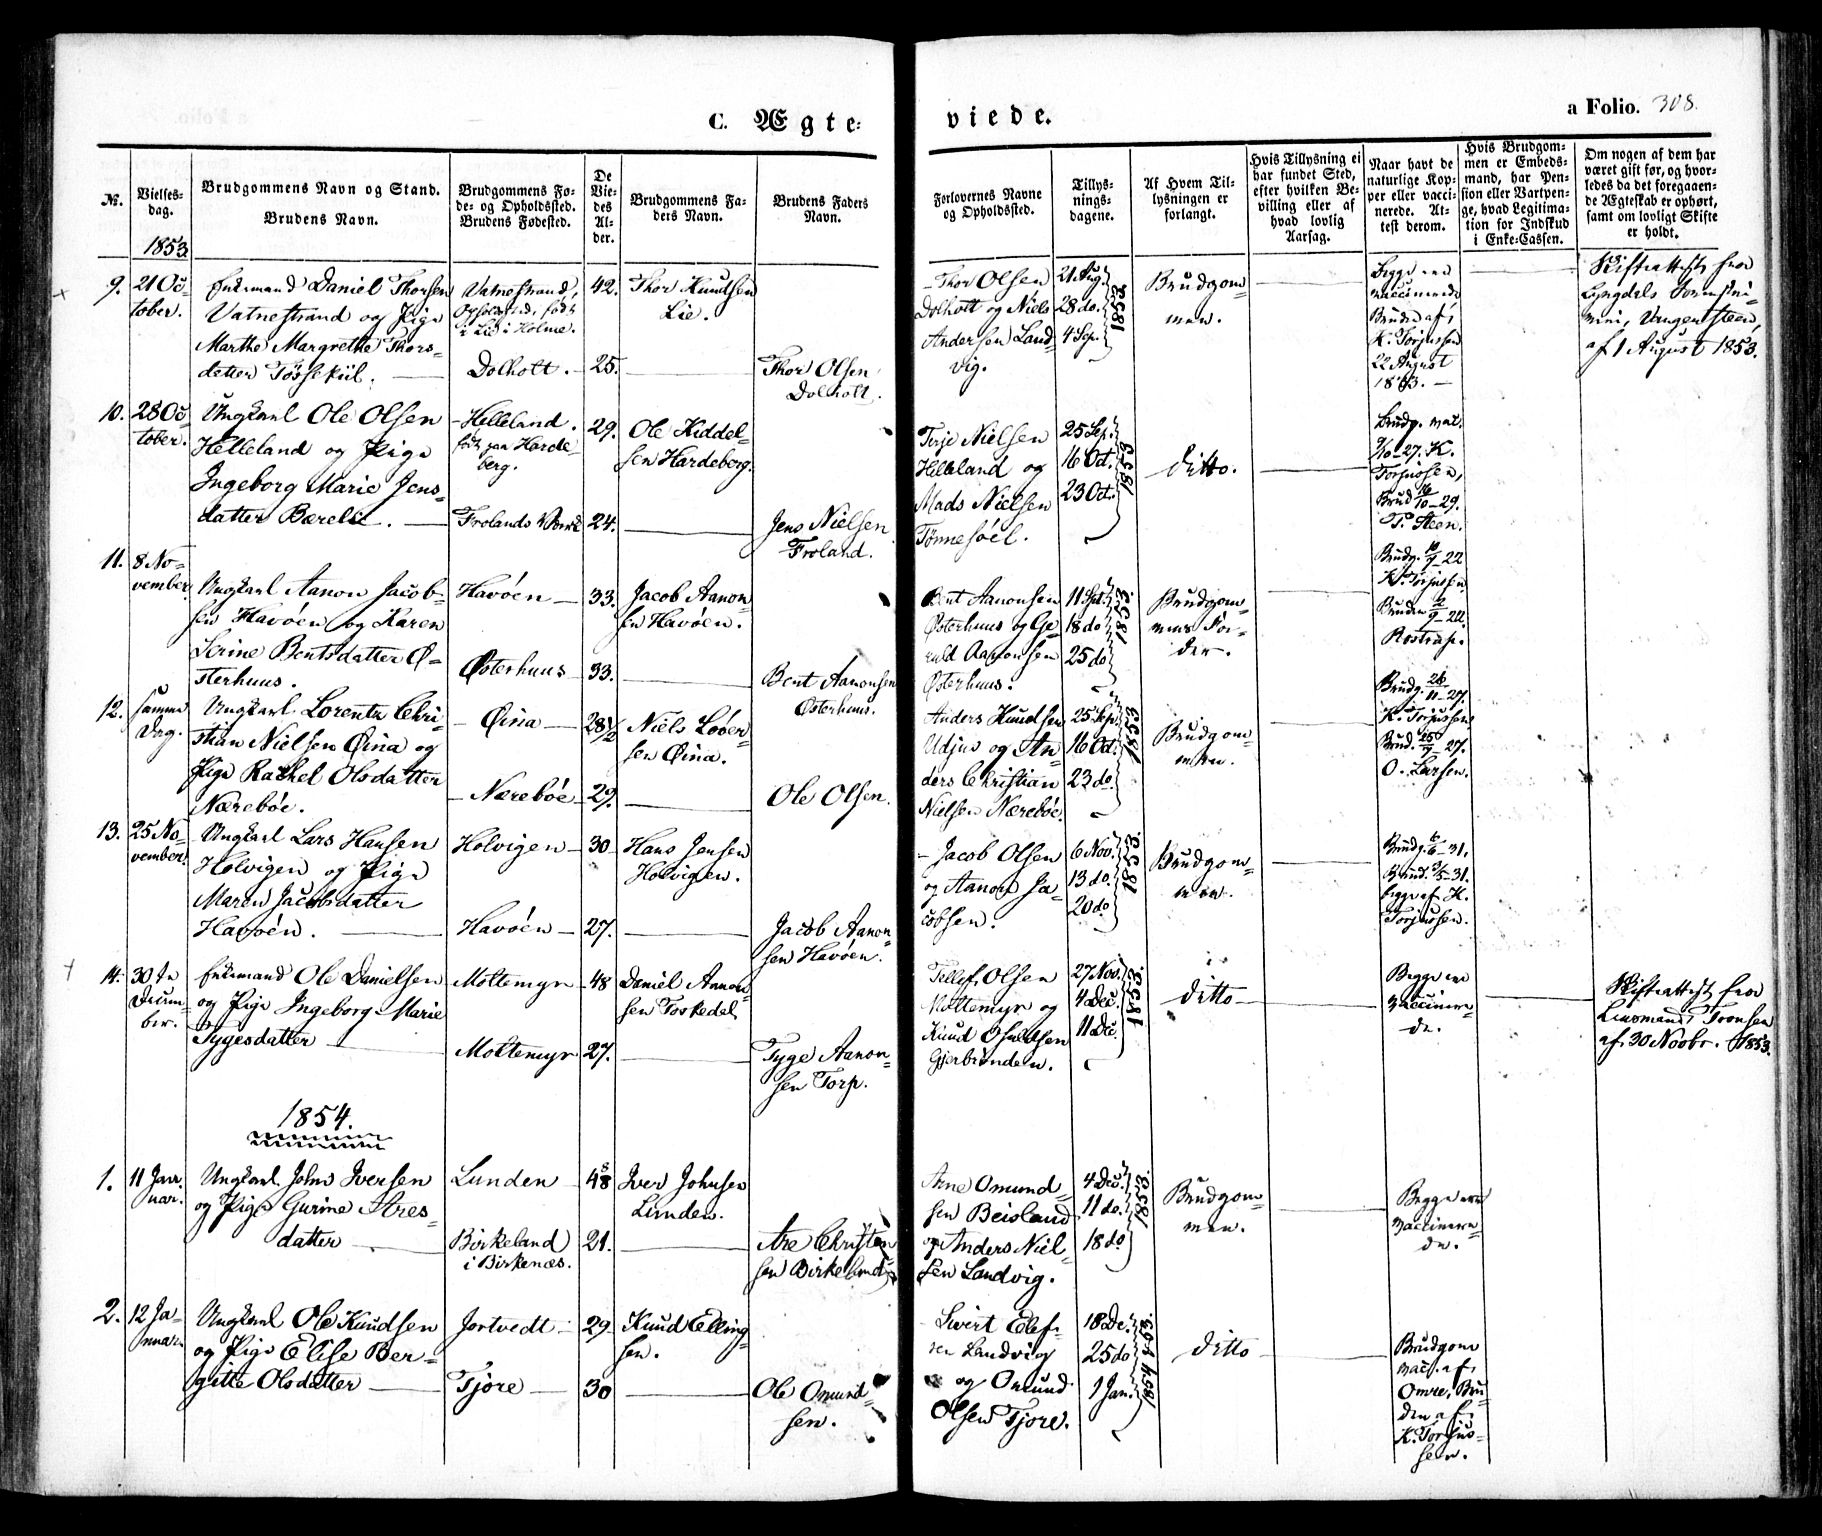 C. Ægte-
viede.
a Folio. 308.
No.
Vielses-
dag.
Brudgommens Navn og Stand.
Brudens Navn.
Brudgommens Fø-
de- og Opholdsted.
Brudens Fødested.
De
Vie-
des
Al-
der.
Brudgommens Fa-
ders Navn.
Brudens Faders
Navn.
Forlovernes Navne
og Opholdsted.
Tillys-
nings-
dagene.
Af Hvem Til-
lysningen er
forlangt.
Hvis Tillysning ei
har fundet Sted,
efter hvilken Be-
villing eller af
hvad lovlig
Aarsag.
Naar havt de
naturlige Kop-
per eller vacci-
nerede. At-
test derom.
Hvis Brudgom-
men er Embeds-
mand, har Pen-
sion eller Vartpen-
ge, hvad Legitima-
tion for Indskud
i Enke-Cassen.
Om nogen af dem har
været gift før, og hvor-
ledes da det foregaaen-
de Ægteskab er ophørt,
samt om lovligt Skifte
er holdt.
1853.
9.
21 Oc-
tober.
Enkemand Daniel Thorsen
Vatnestrand og Pige
Marthe Margrethe Thors-
datter Tössekiil.
Vatnestrand,
Opholdsted, født
i Lie i Holme.
Dolholt.
42.
25.
Thor Knudsen
Lie.
Thor Olsen
Dolholt.
Thor Olsen
Dolholt og Niels
Andersen Land-
vig.
21 Aug.
28 do.
4 Sep.
1853
Brudgom-
men.
Begge ere
vaccinerede
Bruden af
K. Torjussen
22 August
1853.
Skifteattest fra
Lyngdals Sorenskri-
veri, Vangensteen,
af 1 August 1853.
10.
28 Oc-
tober.
Ungkarl Ole Olsen
Helleland og Pige
Ingeborg Marie Jens-
datter Bærelie.
Helleland.
født paa Harde-
berg.
Frolands Værk
29.
24.
Ole Kiddel-
sen Hardeberg.
Jens Nielsen
Froland.
Terje Nielsen
Helleland og
Mads Nielsen
Tønnesöel.
25 Sep.
16 Oct.
23 Oct.
1853
ditto.
Brudg. vac.
9/10 27. K.
Torjussen,
Brud 16/10 29.
P. Steen.
11.
8 No-
vember.
Ungkarl Aanon Jacob-
sen Havöen og Karen
Serine Bentsdatter Ø-
sterhuus.
Havöen
Østerhuus
33.
33.
Jacob Aanon-
sen Havöen.
Bent Aanonsen
Østerhuus.
Bent Aanonsen
Østerhuus og Ge-
ruld Aanonsen
Østerhuus.
11 Spt.
18 do
25 do
1853
Brudgom-
mens Fa-
der.
Brudg. 10/9 22
K. Torjussen
Bruden 2/9 22.
Rostrup.
12.
samme
Dag.
Ungkarl Lorentz Chri-
stian Nielsen Øina og
Pige Rachel Olsdatter
Næreböe.
Øina
Næreböe
28 1/2
29.
Niels Löver-
sen Øina.
Ole Olsen.
Anders Knudsen
Udjus og An-
ders Christian
Nielsen Næreböe.
25 Sep.
16 Oct.
23 do
1853
Brudgom-
men.
Brudg. 26/11 27.
K. Torjussen
Brud. 25/9 27.
O. Larsen.
13.
25 No-
vember.
Ungkarl Lars Hansen
Holvigen og Pige
Maren Jacobsdatter
Havöen.
Holvigen
Havöen
30
27.
Hans Jensen
Holvigen.
Jacob Aanon-
sen Havöen.
Jacob Olsen
og Aanon Ja-
cobsen.
6 Nov.
13 do.
20 do
1853
Brudgom-
men.
Brudg. 6/6 31,
Brud. 3/5 31.
begge af K.
Torjussen.
14.
30 te
Decem-
ber.
Enkemand Ole Danielsen
og Pige Ingeborg Marie
Tygesdatter
Moltemyr
Moltemyr
48
27.
Daniel Aanon-
sen Toskedal.
Tyge Aanon-
sen Torp.
Tellef Olsen
Moltemyr og
Knud Osuldsen
Gjerbrönden.
27 Nov.
4 Dec.
11 Dec.
1853
ditto
Begge ere
vaccinere-
de.
Skifteattest fra
Lensmand Svensen
af 30 Novbr. 1853.
1854.
1.
11 Jan-
nuar.
Ungkarl John Iversen
og Pige Gurine Ares-
datter
Lunden
Birkeland
i Birkenæs.
48
21.
Iver Johnsen
Lunden.
Are Christen-
sen Birkeland
Arne Omund-
sen Beisland
og Anders Niel-
sen Landvig.
4 Dec.
11 do.
18 do
1853.
Brudgom-
men.
Begge ere
vaccinere-
de.
2.
12 Ja-
nuar.
Ungkarl Ole Knudsen
og Pige Elise Ber-
gitte Olsdatter
Jortvedt
Tjore
29.
30
Knud Elling-
sen.
Ole Omund-
sen.
Sivert Elef-
sen Landvig
og Omund
Olsen Tjore.
18 De.
25 do
1 Jan.
1854
ditto
Brudgom
vac. af
Omre, Bru-
den af
K. Torjus-
sen.